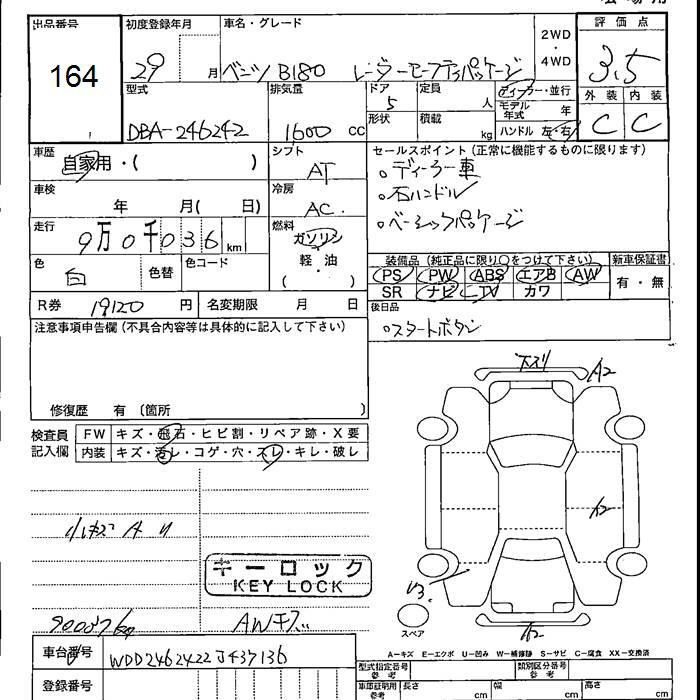 出品番号
164
初度登録年月
29 月
車名・グレード
ベンツ B180 レーダーセーフティパッケージ
2WD・4WD
評価点
3.5
外装 内装
C C
型式
DBA-246242
排気量
1600 cc
ドア
5
定員
人
形状
積載
kg
ディーラー・並行
モデル年式 年
ハンドル 左・右
車歴
自家用・( )
シフト
AT
セールスポイント(正常に機能するものに限ります)
。ディーラー車
。右ハンドル
。ベーシックパッケージ
車検
年 月( 日)
冷房
AC
走行
9万0千036km
燃料
ガソリン
軽・油
( )
色
白
色替
色コード
装備品(純正品に限り○をつけて下さい)
新車保証書
PS PW ABS エアB AW
SR ナビ TV カワ
有・無
R券 19120 円
名変期限 月 日
後日品
。スタートボタン
注意事項申告欄(不具合内容等は具体的に記入して下さい)
修復歴 有(箇所 )
検査員記入欄
FW キズ・飛石・ヒビ割・リペア跡・X要
内装 キズ・汚レ・コゲ・穴・スレ・キレ・破レ
下スリ
A2
A2
キーロック
KEY LOCK
U3
スペア
A2
90036km
AWキズ
車台番号
WDD2462422J437136
登録番号
A-キズ E-エクボ U-凹み W-補修跡 S-サビ C-腐食 XX-交換済
型式指定番号
参考
類別区分番号
参考
車庫証明用
参考
長さ cm
幅 cm
高さ cm